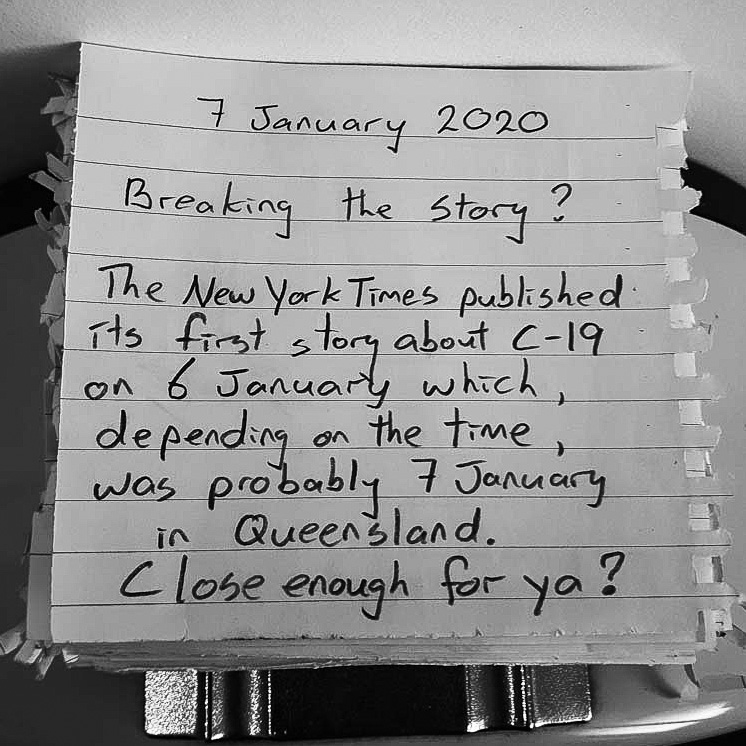 7 January 2020
Breaking the story?
The New York Times published
its first story about C-19
on 6 January which,
depending on the time,
was probably 7 January
in Queensland.
Close enough for ya?